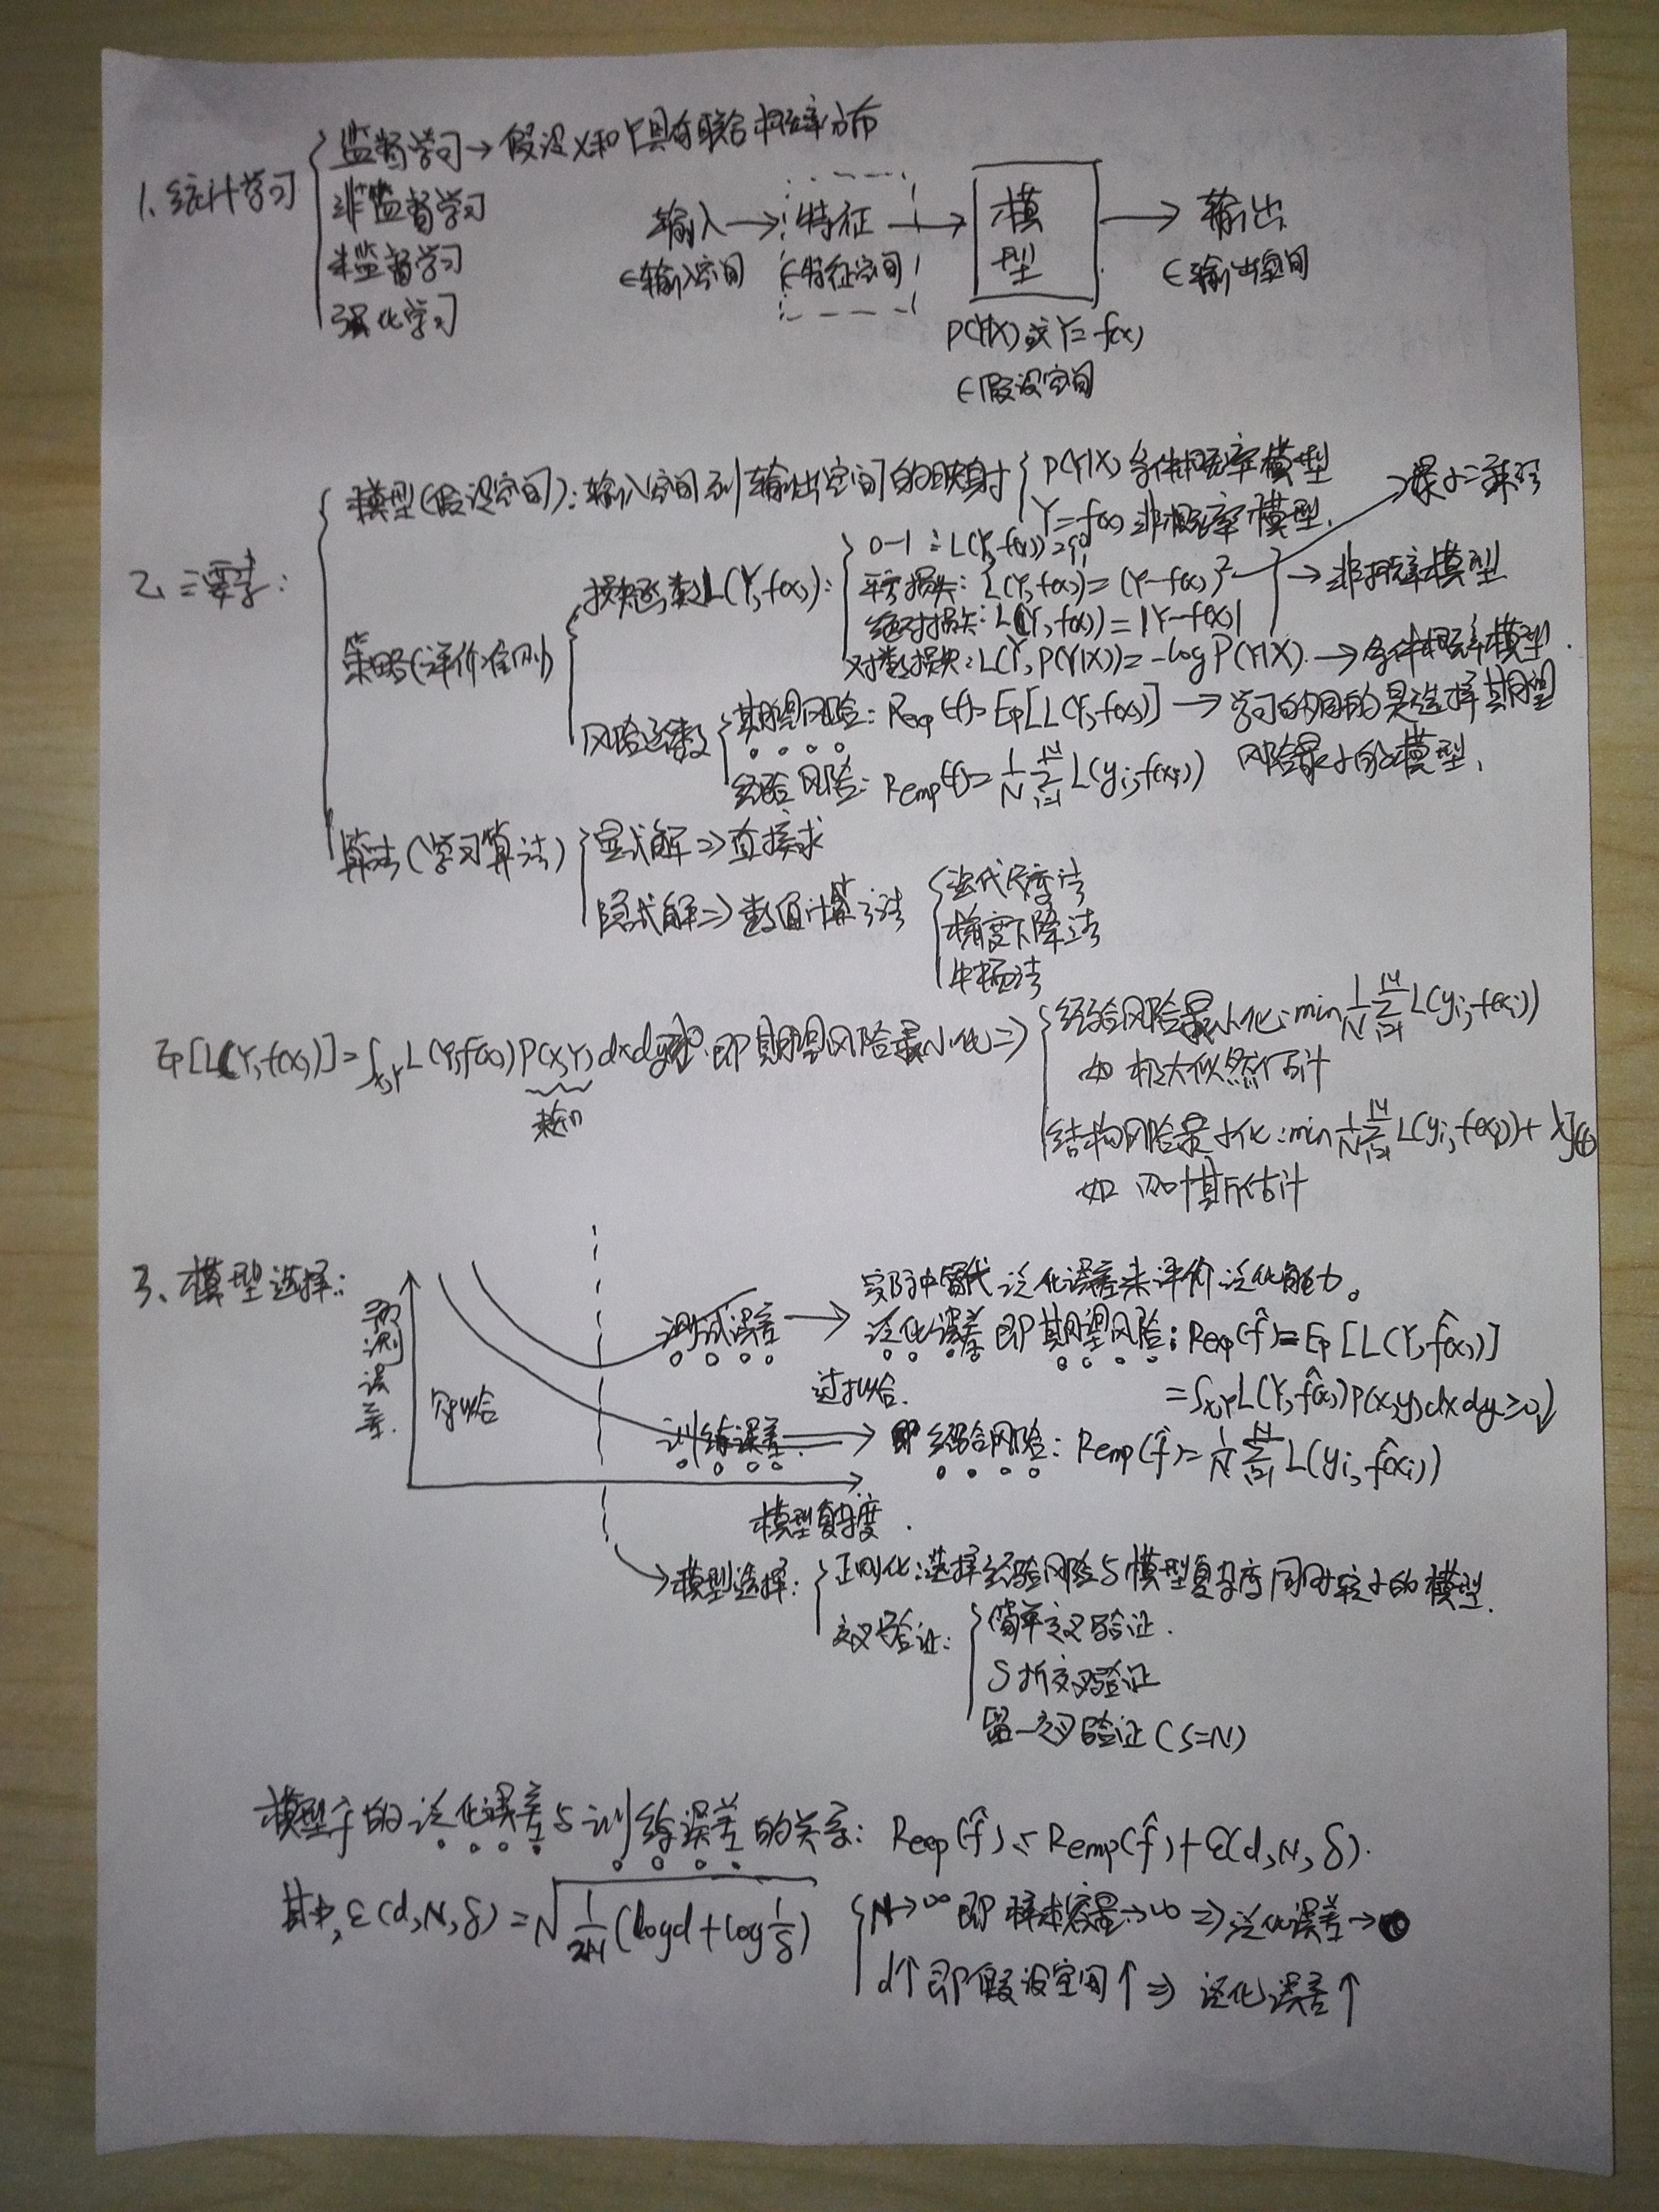 1、统计学习
监督学习→假设X和Y具有联合概率分布
非监督学习
半监督学习
强化学习
输入→特征→模型→输出
∈输入空间 ∈特征空间 ∈输出空间
P(Y|X)或Y=f(x)
∈假设空间
2、三要素:
模型(假设空间):输入空间到输出空间的映射
P(Y|X)条件概率模型
Y=f(x)非概率模型.
→最小二乘法
策略(评价准则)
损失函数L(Y,f(x)):
0-1:L(Y,f(x))=
平方损失:L(Y,f(x))=(Y-f(x))²
绝对损失:L(Y,f(x))=|Y-f(x)|
→非概率模型
对数损失:L(Y,P(Y|X))=-logP(Y|X).→条件概率模型.
风险函数
期望风险:Rexp(f)=Ep[L(Y,f(x))]→学习的目的是选择期望
风险最小的模型.
经验风险:Remp(f)=1/N Σ(i=1→N) L(yi,f(xi))
算法(学习算法)
显式解⇒直接求
隐式解⇒数值计算方法
迭代尺度法
梯度下降法
牛顿法
Ep[L(Y,f(x))]=∫x,y L(Y,f(x))P(x,y)dxdy 即期望风险最小化⇒
未知
经验风险最小化:min 1/N Σ(i=1→N) L(yi,f(xi))
如 极大似然估计
结构风险最小化:min 1/N Σ(i=1→N) L(yi,f(xi))+λJ(f)
如 贝叶斯估计
3、模型选择:
预测误差
欠拟合
过拟合.
测试误差→
实际中替代泛化误差来评价泛化能力。
泛化误差即期望风险:Rexp(f̂)=Ep[L(Y,f̂(x))]
=∫x,y L(Y,f̂(x))P(x,y)dxdy≥0
训练误差→即经验风险:Remp(f̂)=1/N Σ(i=1→N) L(yi,f̂(xi))
模型复杂度.
→模型选择:
正则化:选择经验风险与模型复杂度同时较小的模型.
交叉验证:
简单交叉验证.
S折交叉验证
留一交叉验证(S=N)
模型f̂的泛化误差与训练误差的关系:Rexp(f̂)≤Remp(f̂)+ε(d,N,δ).
其中,ε(d,N,δ)=√(1/2N (logd+log 1/δ))
N→∞即样本容量→∞⇒泛化误差→0
d↑即假设空间↑⇒泛化误差↑